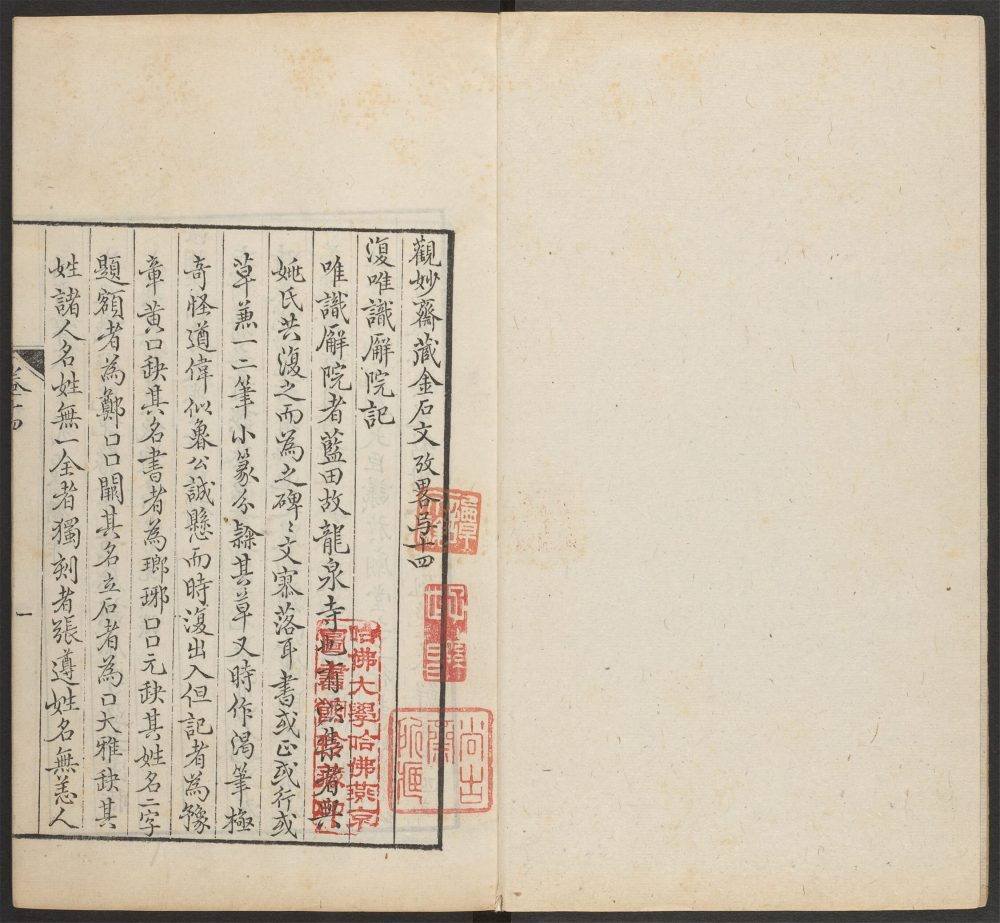 觀妙齋藏金石文攷畧卷十四
復唯識廨院記
唯識廨院者藍田故龍泉寺也有 集者與
姚氏共復之而為之碑〻文寥落耳書或正或行或
草兼一二筆小篆分隸其草又時作渴筆極
奇怪遒偉似魯公誠懸而時復出入但記者為豫
章黃口缺其名書者為瑯琊口口元缺其姓名二字
題額者為鄭口口闕其名立石者為口大雅缺其
姓諸人名姓無一全者獨刻者張遵姓名無恙人
卷十四
一
哈佛大學哈佛燕京
圖書館
尚古